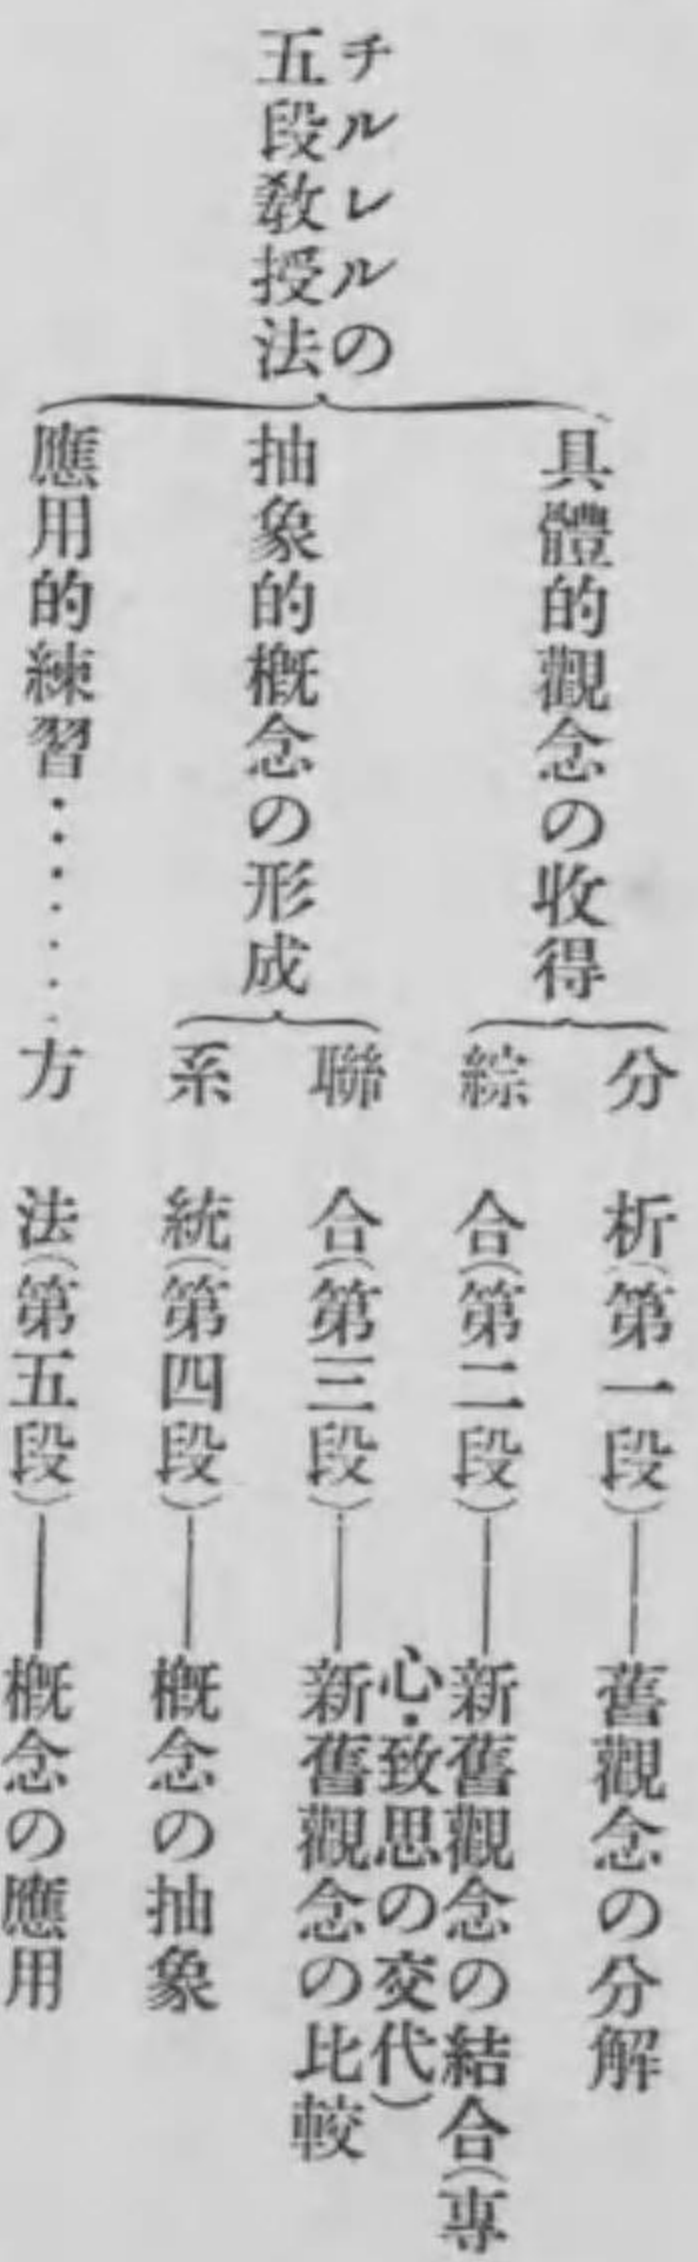 チルレルの
五段教授法
具體的觀念の收得
分析(第一段)——舊觀念の分解
綜合(第二段)——新舊觀念の結合(專
心・致思の交代)
抽象的槪念の形成
聯合(第三段)——新舊觀念の比較
系統(第四段)——槪念の抽象
應用的練習・・・・・・・方法(第五段)——槪念の應用